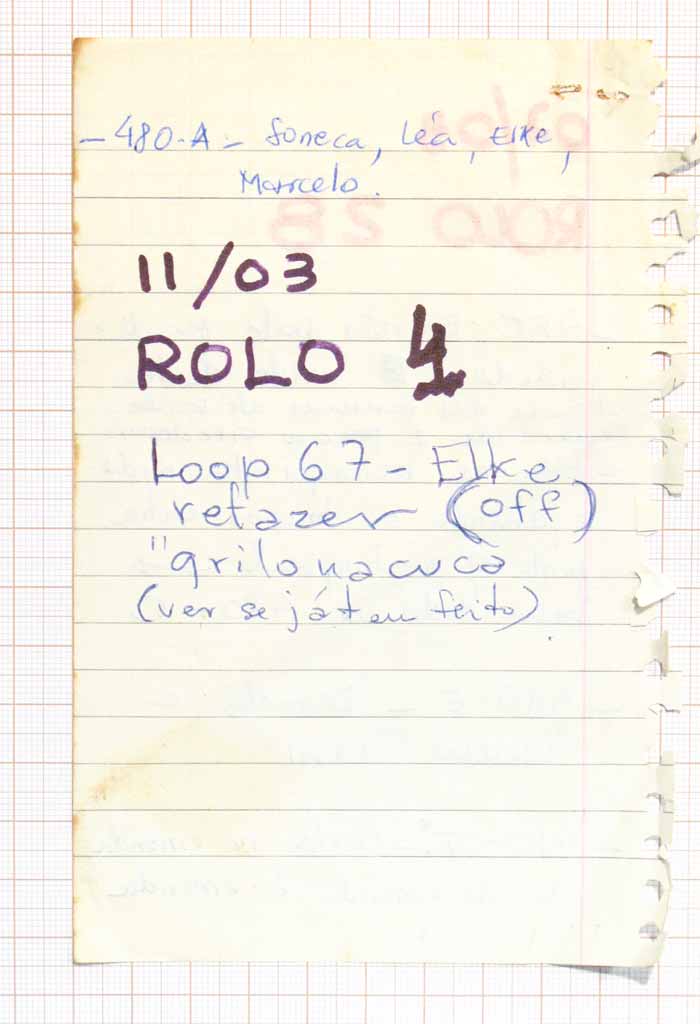 - 480-A - Soneca, Léa, Elke,
Marcelo.
11/03
ROLO 4
Loop 67 - Elke
refazer (off)
"grilo na cuca
(ver se já tem feito)